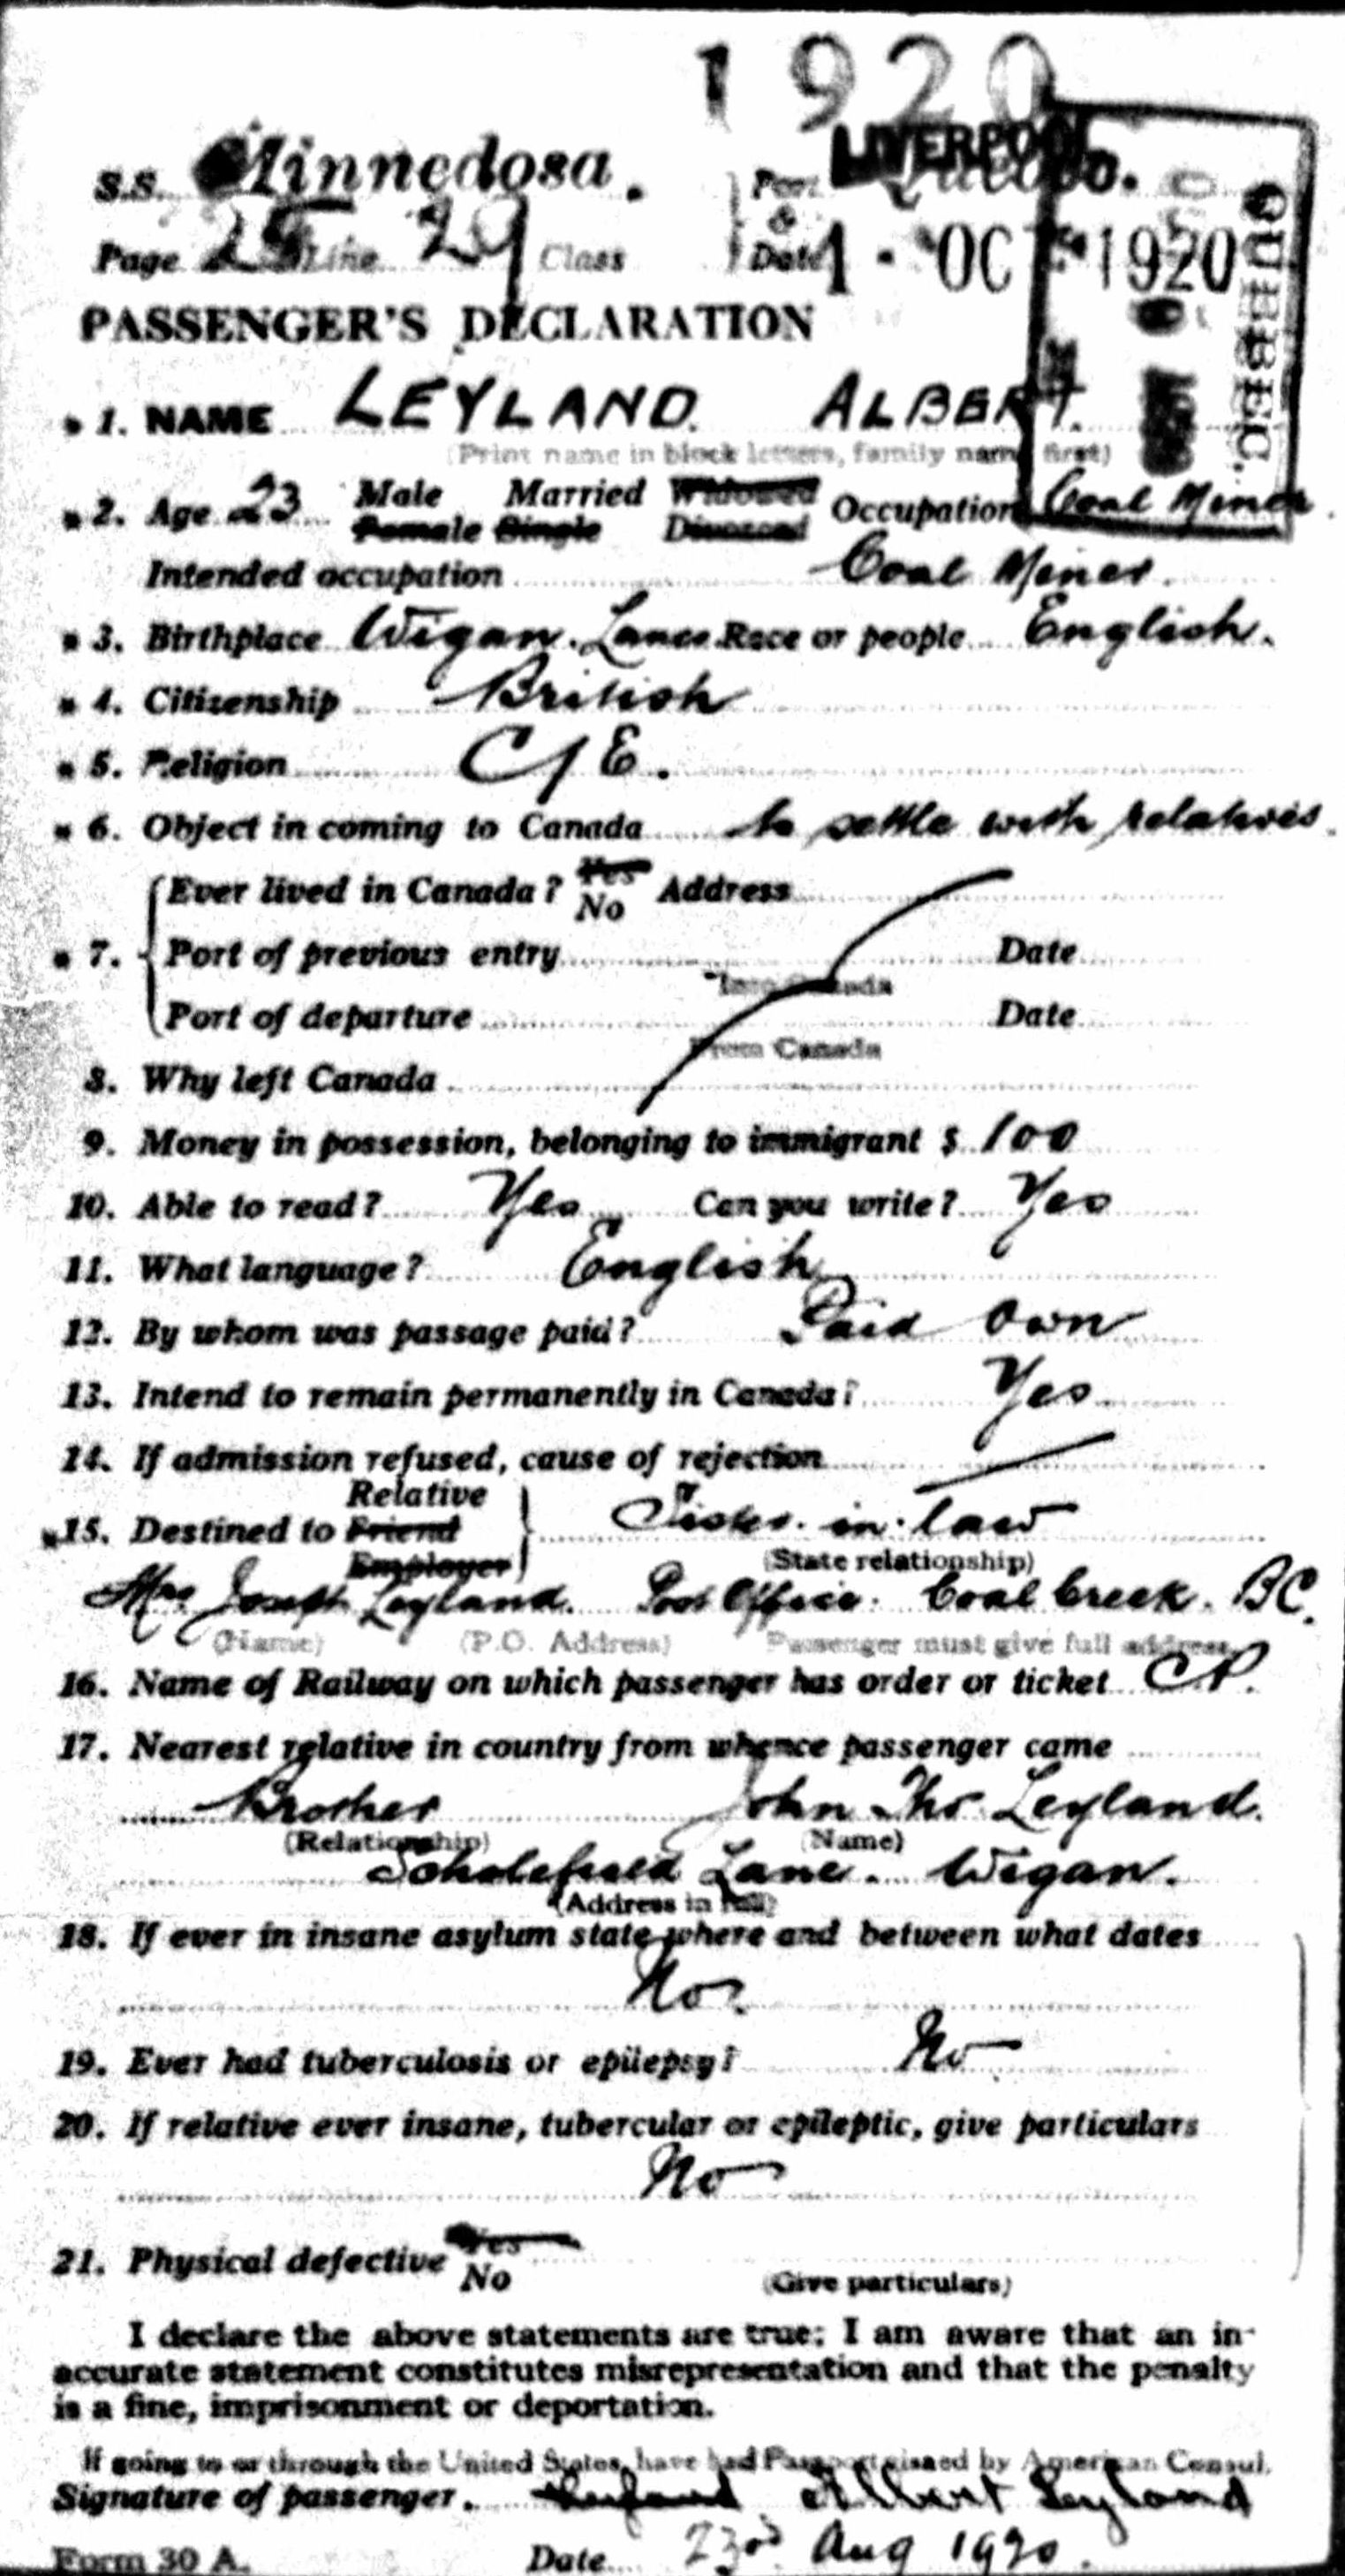 1920
S.S. Minnedosa. Port LIVERPOOL
Page 25 Line 29 Class & Date 1 - OCT 1920
QUEBEC.
PASSENGER'S DECLARATION
1. NAME LEYLAND. ALBERT.
(Print name in block letters, family name first)
2. Age 23 Male Married Widowed Occupation Coal Miner.
Female Single Divorced
Intended occupation Coal Miner.
3. Birthplace Wigan. Lancs Race or people English.
4. Citizenship British
5. Religion C/E.
6. Object in coming to Canada to settle with relatives.
7. Ever lived in Canada? Yes No Address
Port of previous entry Date
Into Canada
Port of departure Date
From Canada
8. Why left Canada
9. Money in possession, belonging to immigrant $ 100
10. Able to read? Yes Can you write? Yes
11. What language? English
12. By whom was passage paid? Paid Own
13. Intend to remain permanently in Canada? Yes
14. If admission refused, cause of rejection
Relative
15. Destined to Friend Sister. in. law
Employer (State relationship)
Mrs Joseph Leyland. Post Office. Coal Creek. BC.
(Name) (P.O. Address) Passenger must give full address
16. Name of Railway on which passenger has order or ticket C.P.
17. Nearest relative in country from whence passenger came
Brother John Thos Leyland.
(Relationship) (Name)
Scholefield Lane. Wigan.
(Address in full)
18. If ever in insane asylum state where and between what dates
No.
19. Ever had tuberculosis or epilepsy? No
20. If relative ever insane, tubercular or epileptic, give particulars
No
21. Physical defective Yes No
(Give particulars)
I declare the above statements are true: I am aware that an in-
accurate statement constitutes misrepresentation and that the penalty
is a fine, imprisonment or deportation.
If going to or through the United States, have had Passport visaed by American Consul.
Signature of passenger. Leyland Albert Leyland
Form 30 A. Date 23rd Aug 1920.